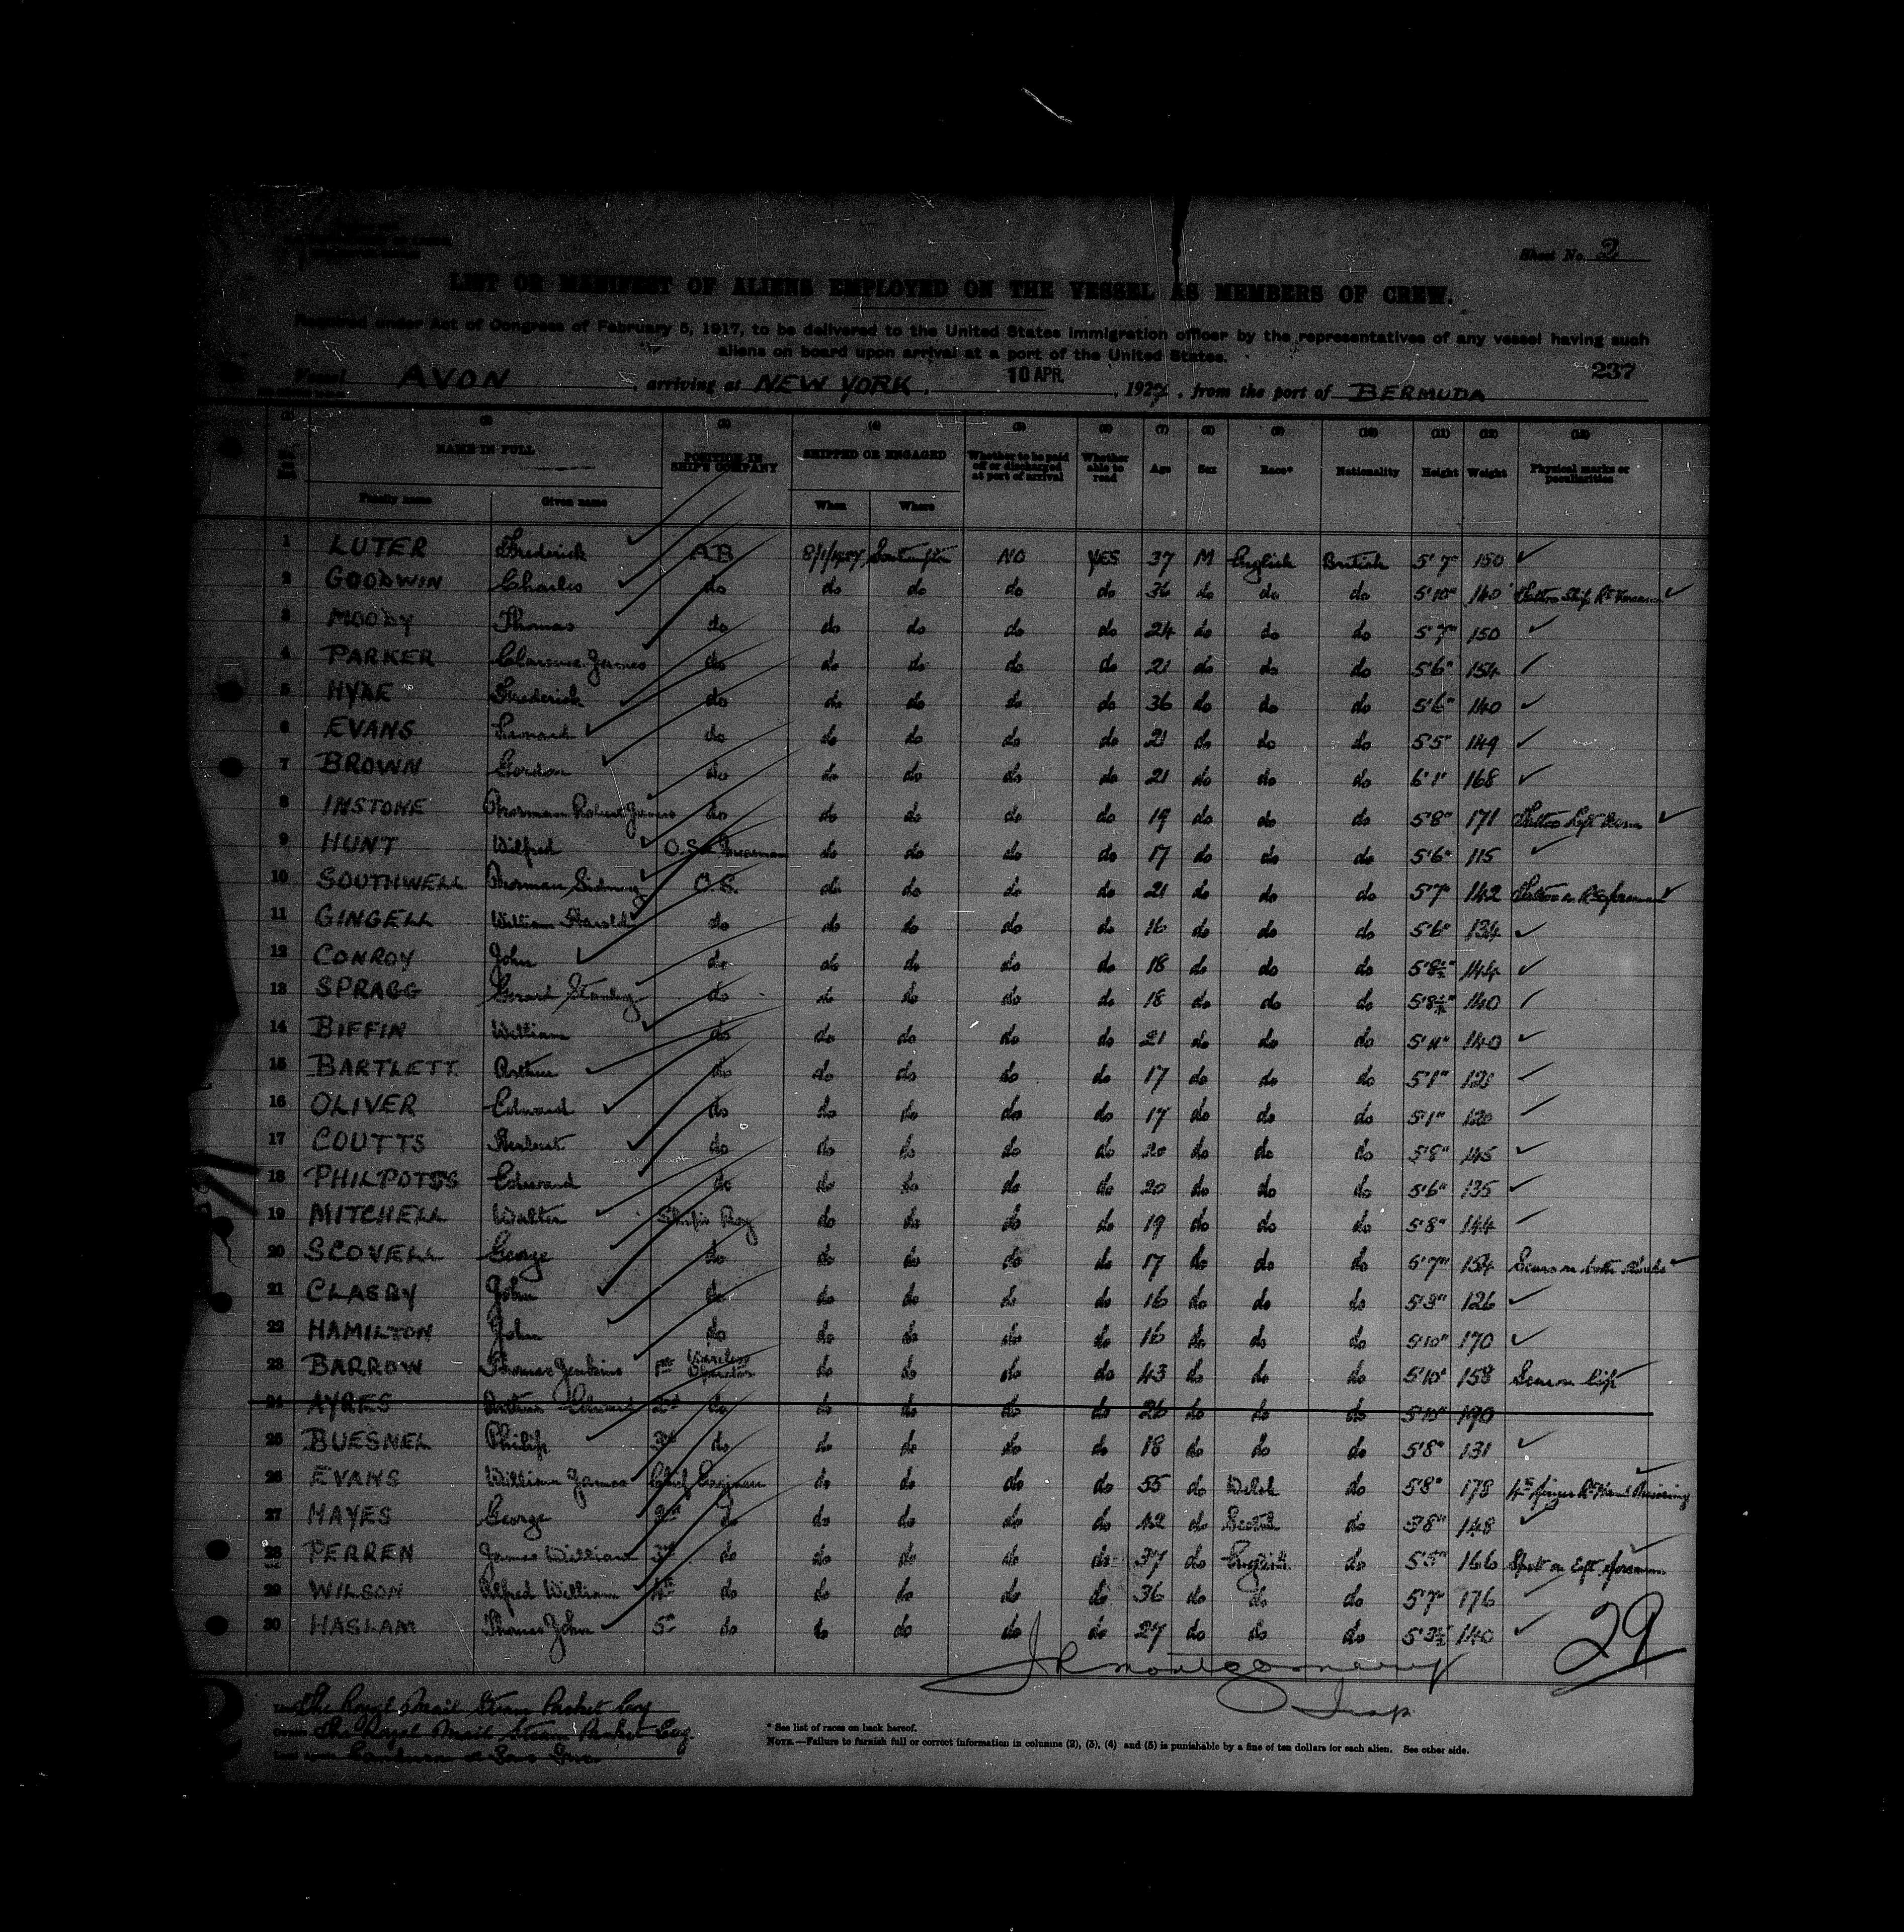 Sheet No. 2
LIST OR MANIFEST OF ALIENS EMPLOYED ON THE VESSEL AS MEMBERS OF CREW.
Required under Act of Congress of February 5, 1917, to be delivered to the United States immigration officer by the representatives of any vessel having such
aliens on board upon arrival at a port of the United States.
237
Vessel AVON, arriving at NEW YORK. 10 APR. 1927, from the port of BERMUDA
(1) (2) (3) (4) (5) (6) (7) (8) (9) (10) (11) (12) (13)
NAME IN FULL POSITION IN SHIP'S COMPANY SHIPPED OR ENGAGED Whether to be paid off or discharged at port of arrival Whether able to read Age Sex Race* Nationality Height Weight Physical marks or peculiarities
Family name Given name When Where
1 LUTER Frederick AB 8/1/1927 NO YES 37 M English British 5'7" 150
2 GOODWIN Charles do do do do do 36 do do do 5'10" 140 Tattoo Ship Rt
3 MOODY Thomas do do do do do 24 do do do 5'7" 150
4 PARKER Clarence James do do do do do 21 do do do 5'6" 154
5 Frederick do do do do do 36 do do do 5'6" 140
6 EVANS Leonard do do do do do 21 do do do 5'5" 149
7 BROWN Gordon do do do do do 21 do do do 6'1" 168
8 INSTONE Norman Robert James do do do do do 19 do do do 5'8" 171 Tattoo Left
9 HUNT Wilfred O.S. do do do do 17 do do do 5'6" 115
10 SOUTHWELL Norman Sidney O.S. do do do do 21 do do do 5'7" 142 Tattoo on Rt forearm
11 GINGELL William Harold do do do do do 16 do do do 5'6" 134
12 CONROY John do do do do do 18 do do do 5'8½" 144
13 SPRAGG Gerard Stanley do do do do do 18 do do do 140
14 BIFFIN William do do do do do 21 do do do 5'11" 140
15 BARTLETT Arthur do do do do do 17 do do do 5'1"
16 OLIVER Edward do do do do do 17 do do do 5'1" 120
17 COUTTS Herbert do do do do do 20 do do do 5'8" 145
18 Edward do do do do do 20 do do do 5'6" 135
19 MITCHELL Walter Ship's Boy do do do do 19 do do do 5'8" 144
20 SCOVELL George do do do do do 17 do do do 5'7" 154 Scars on both
21 CLASBY John do do do do do 16 do do do 5'3" 126
22 HAMILTON John do do do do do 16 do do do 5'10" 170
23 BARROW Thomas Jenkins 1st Wireless Operator do do do do 43 do do do 5'10" 158 Scar on lip
24 AYRES Arthur Edward 2nd do do do do do 26 do do do 5'10" 190
25 BUESNEL Philip 3rd do do do do do 18 do do do 5'8" 131
26 EVANS William James Chief Engineer do do do do 55 do Welsh do 5'8" 178 4th finger Rt Hand Missing
27 HAYES George 2nd do do do do do 42 do Scotch do 5'8" 148
28 PERREN James William 3rd do do do do do 37 do English do 5'5" 166 Spot on Left forearm
29 WILSON Alfred William 4th do do do do do 36 do do do 5'7" 176
30 HASLAM Thomas John 5th do do do do do 27 do do do 5'3½" 140
29
J R Montgomery
Insp
The Royal Mail Steam Packet Coy
Owners The Royal Mail Steam Packet Coy.
* See list of races on back hereof.
NOTE.—Failure to furnish full or correct information in columns (2), (3), (4) and (5) is punishable by a fine of ten dollars for each alien. See other side.